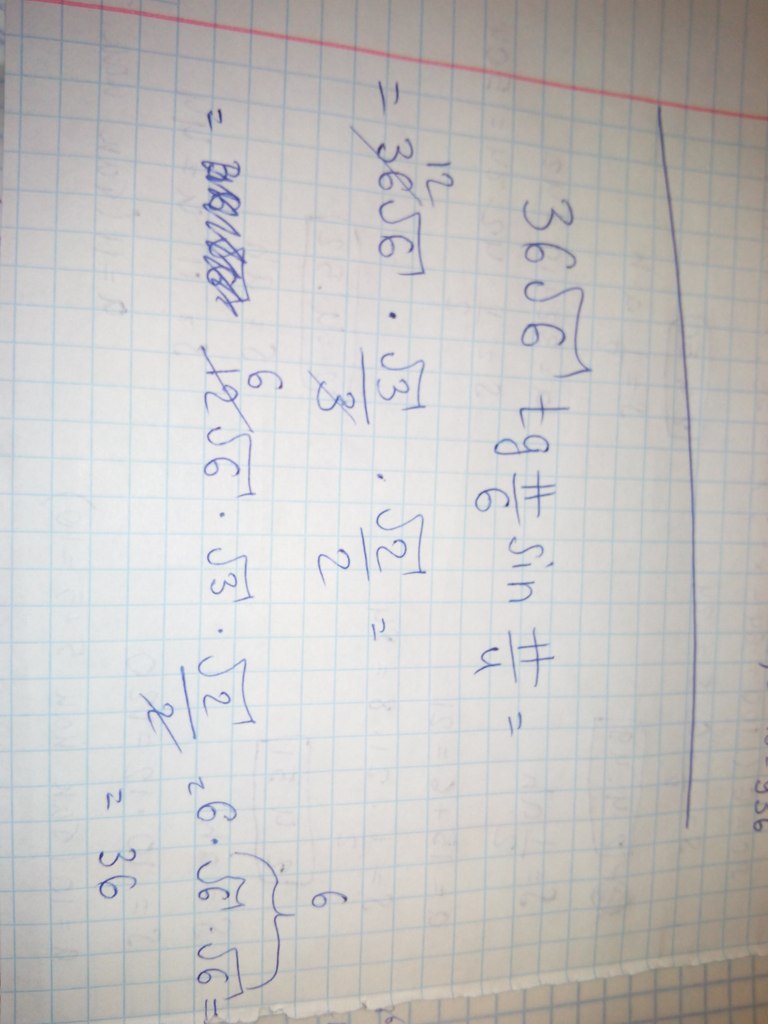 36√6 tg π/6 sin π/4 =
12
= 36√6 · √3/3 · √2/2 =
6 6
= 12√6 · √3 · √2/2 = 6 · √6 · √6 =
= 36